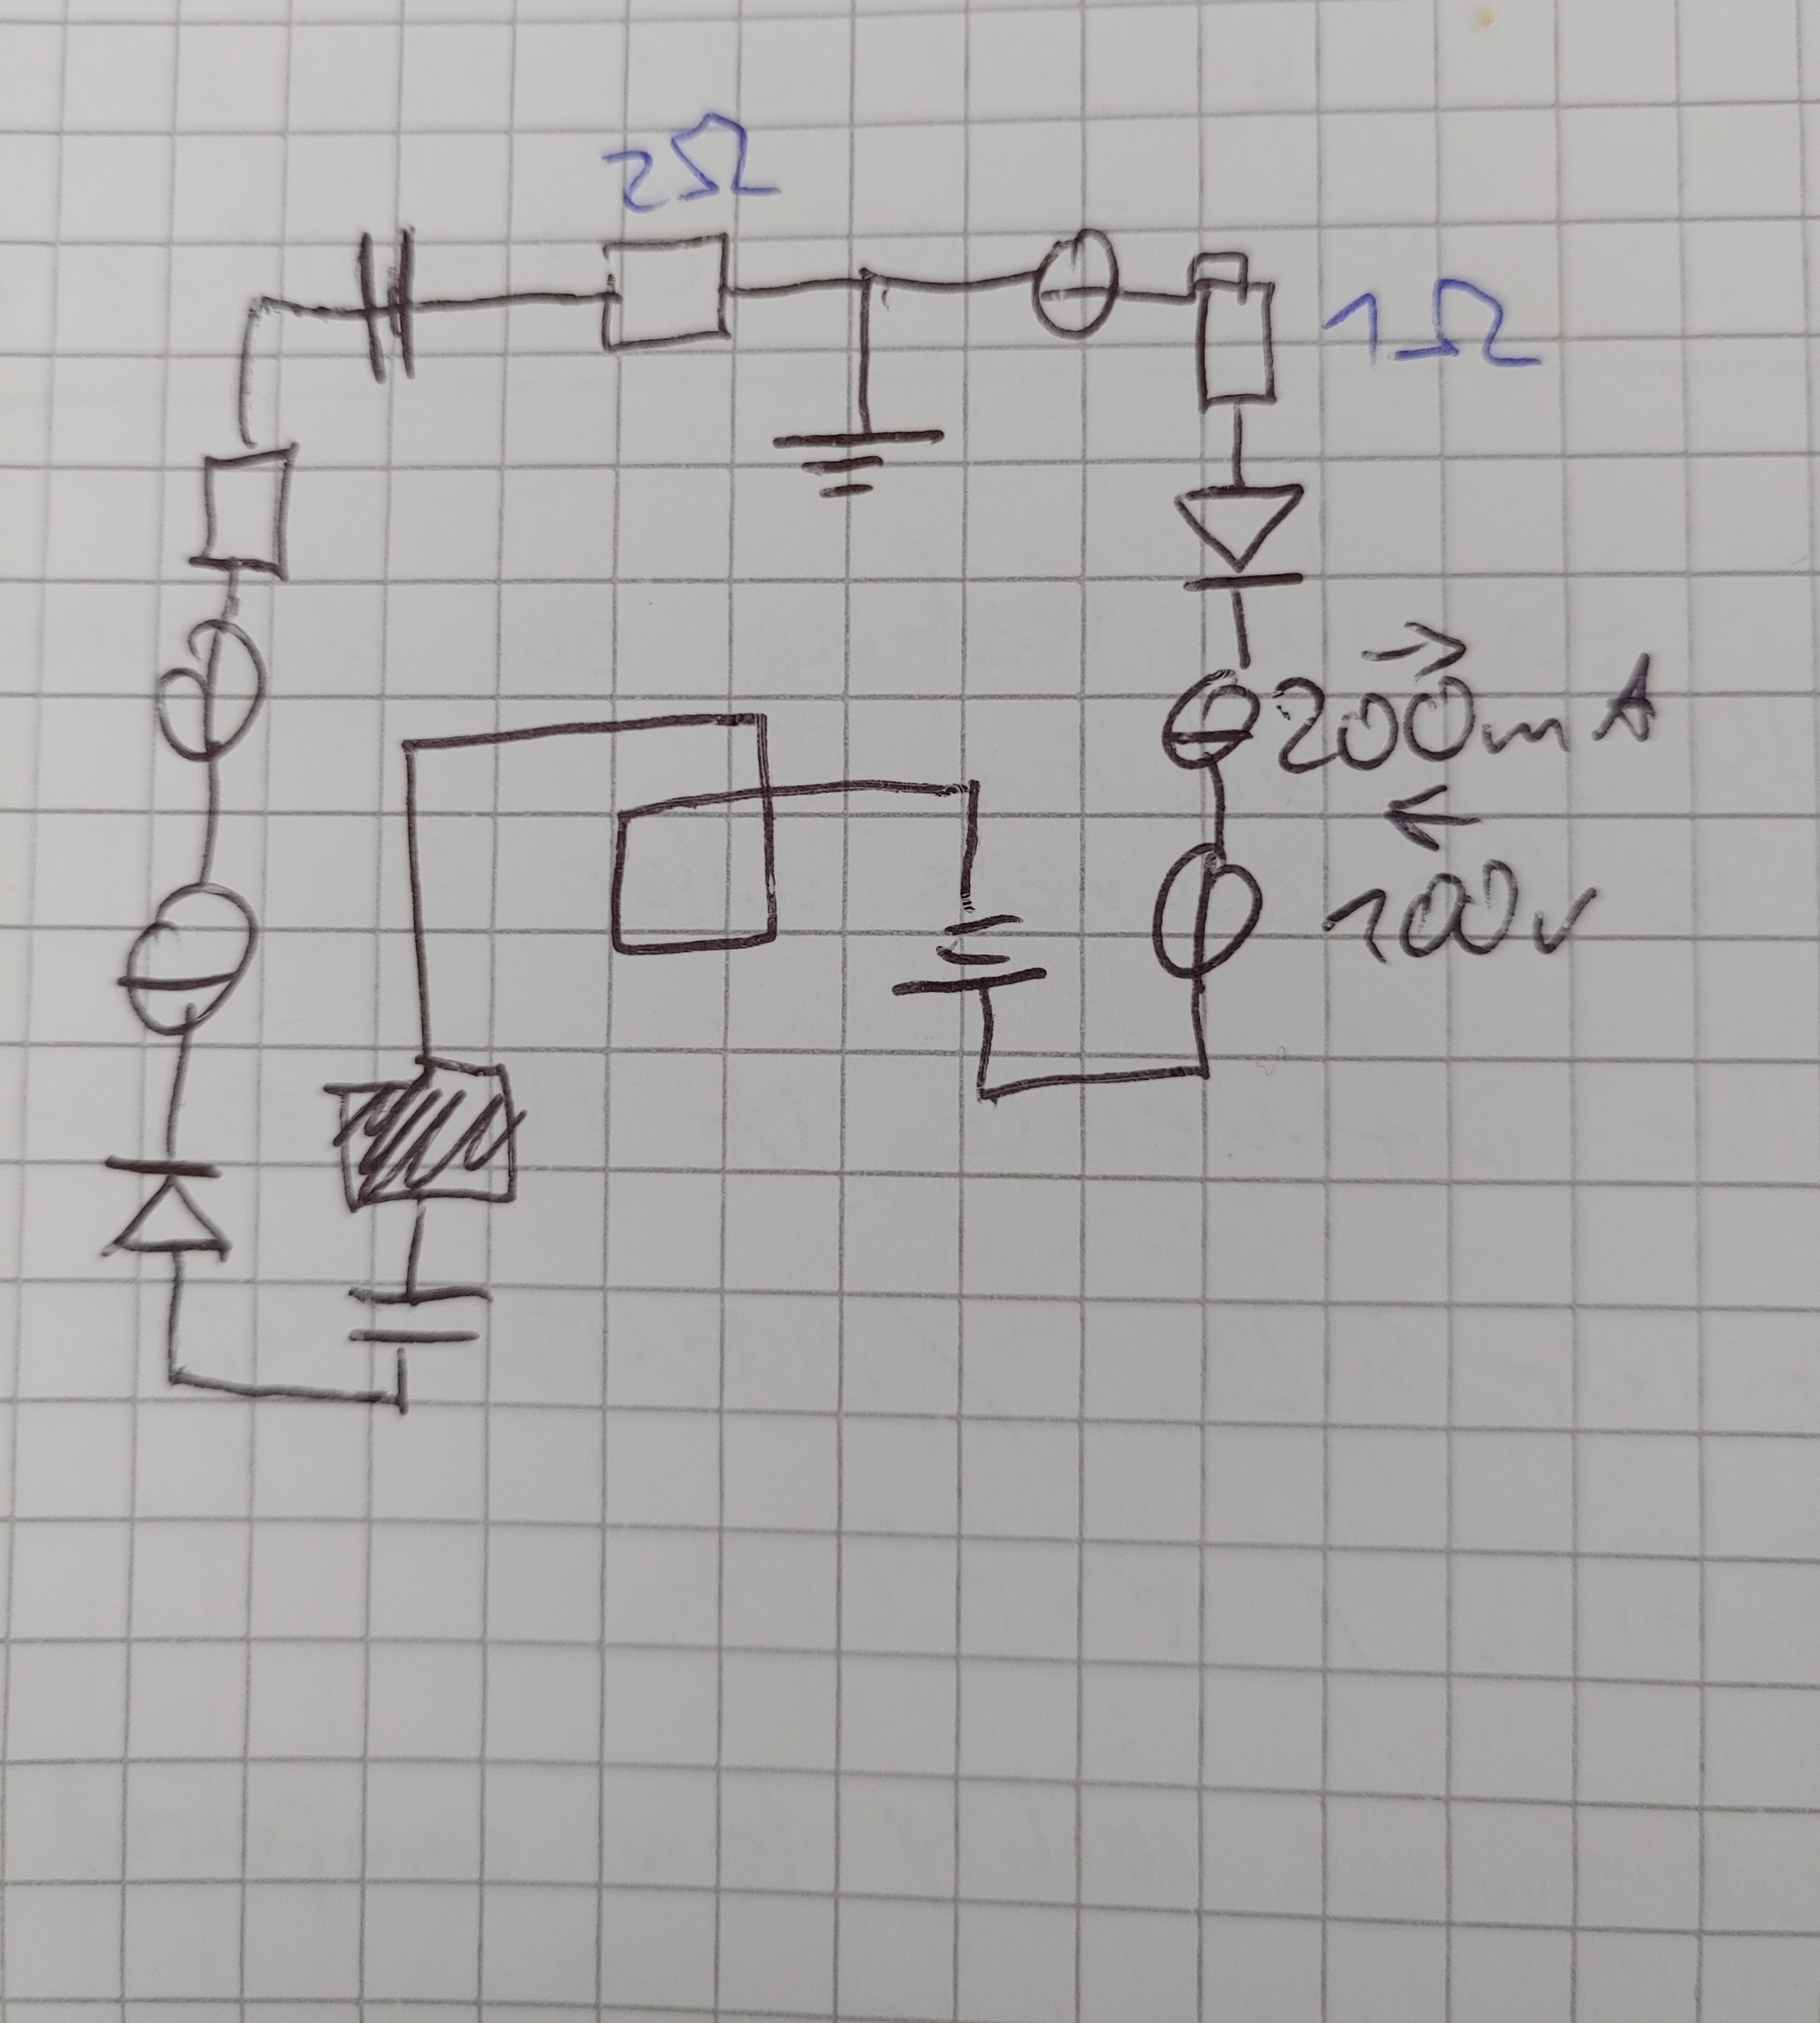 2Ω
1Ω
→
200mA
←
100V